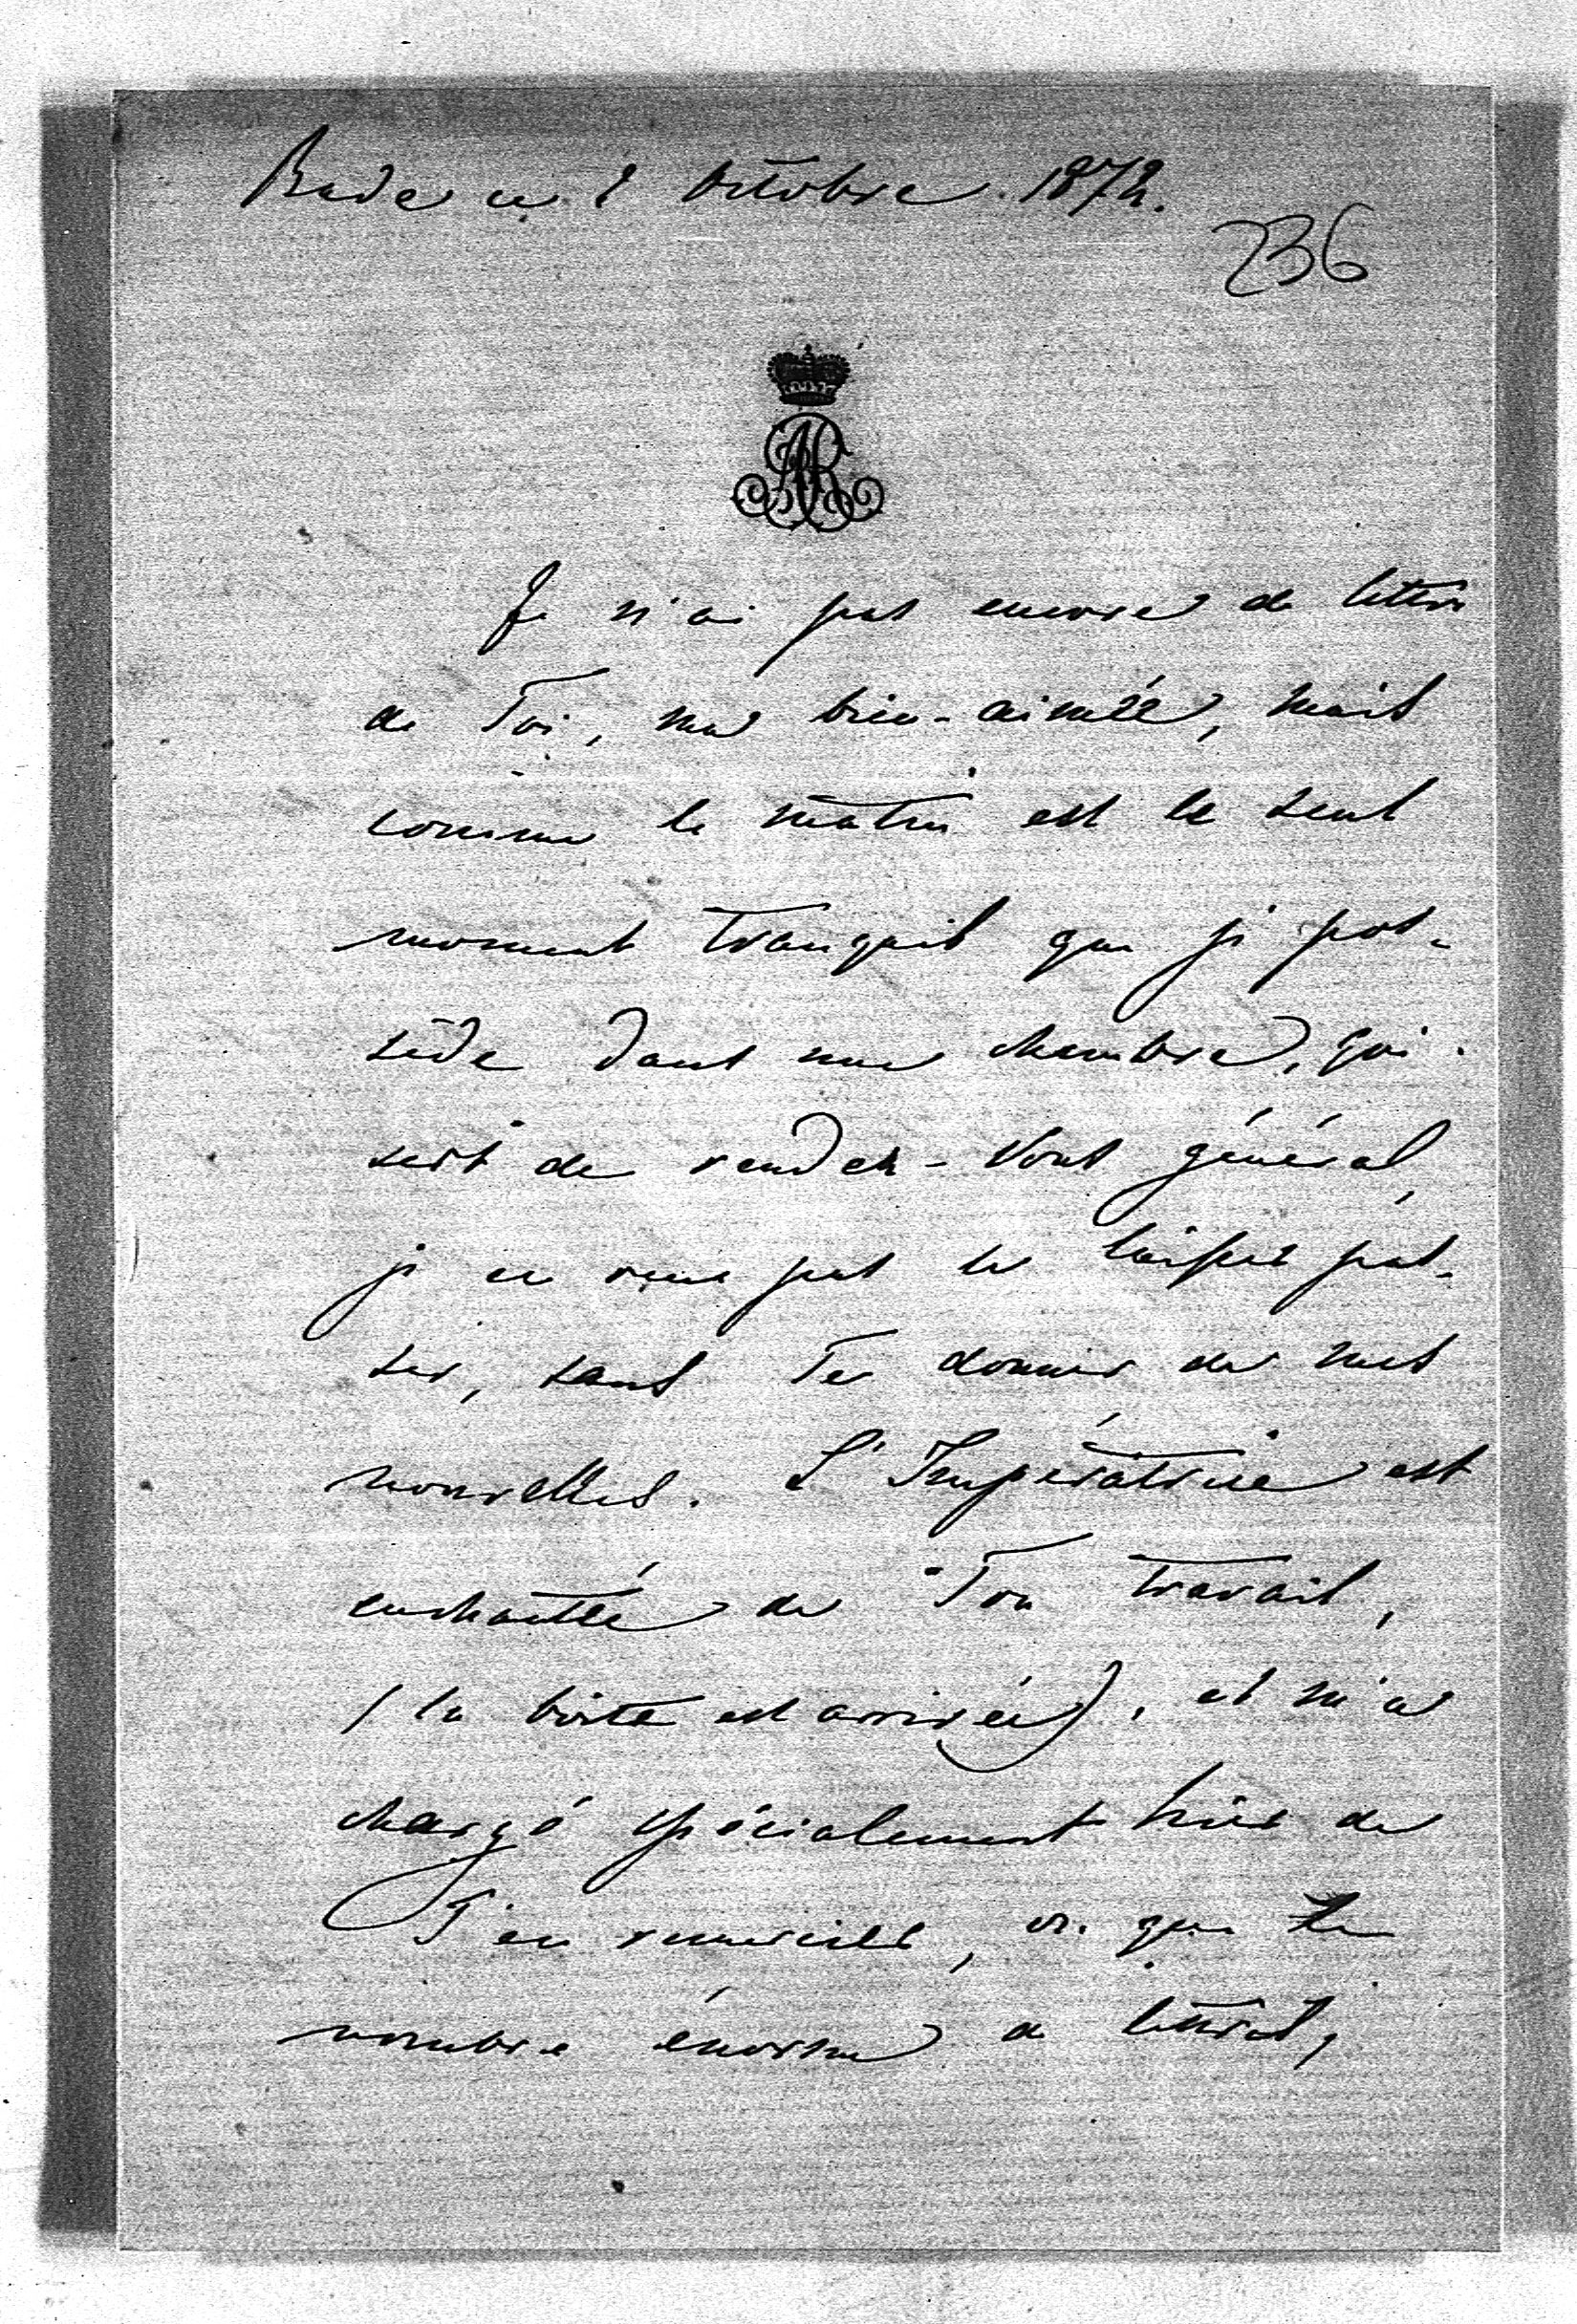 Bade ce 2 Octobre. 1872.
236
AR
Je n'ai pas encore de lettre
de Toi, ma bien-aimée, mais
comme le matin est le seul
moment tranquil que je pos-
sède dans ma chambre, qui
sert de rendez-vous général,
je ne veux pas le laisser pas-
ser, sans Te donner de mes
nouvelles. L'Impératrice est
enchantée de Ton travail,
(la boîte est arrivée), et m'a
chargé spécialement hier de
T'en remercier, que le
nombre énorme de lettres,